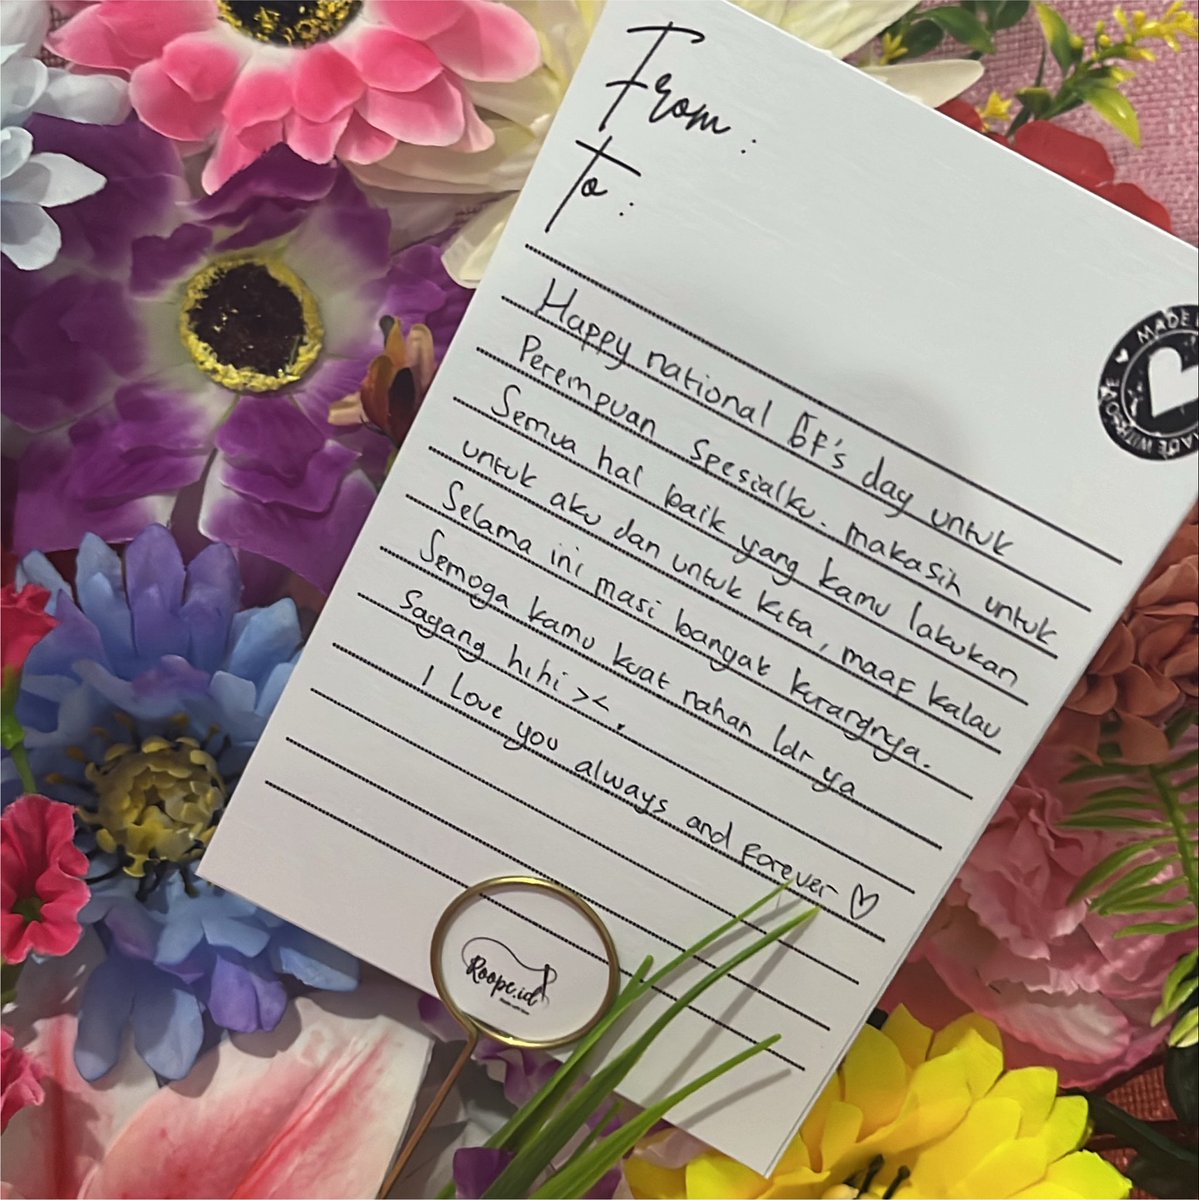 From :
To :
Happy national GF's day untuk
Perempuan Spesialku. makasih untuk
Semua hal baik yang kamu lakukan
untuk aku dan untuk kita, maaf kalau
Selama ini masi banyak kurangnya.
Semoga kamu kuat nahan ldr ya
Sayang hihi ><.
I Love you always and forever ♡
MADE
MADE WITH LOVE
Roope.id